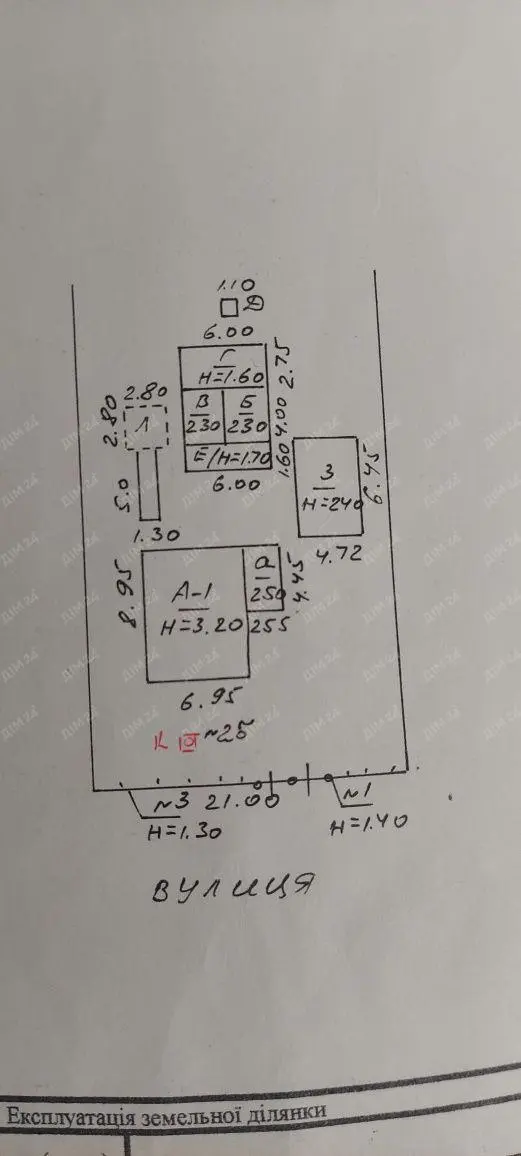 1.10
Д
6.00
Г
H=1.60
2.75
В
230
Б
230
4.00
Е/H=1.70
1.60
6.00
2.80
2.80
Л
5.0
1.30
З
H=240
6.45
4.72
8.95
А-1
H=3.20
250
4.45
255
6.95
К
№25
№3
21.00
H=1.30
№1
H=1.40
ВУЛИЦЯ
Експлуатація земельної ділянки